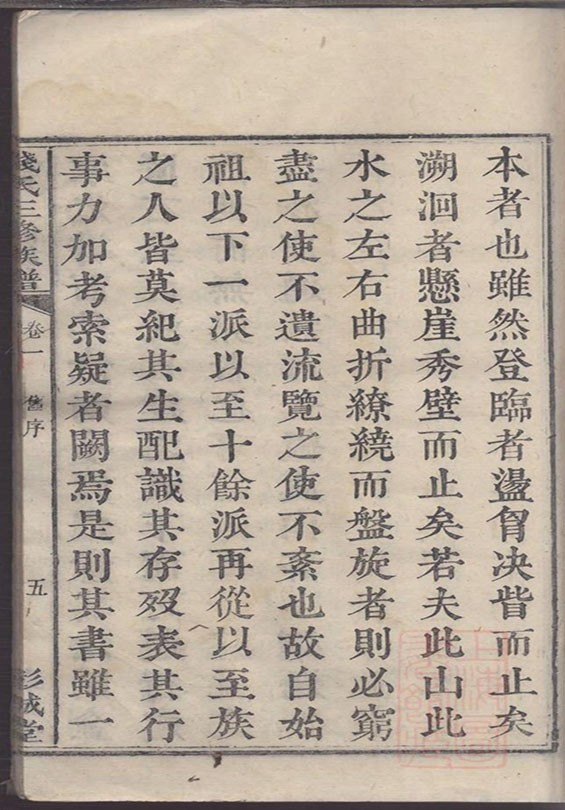 本者也雖然登臨者盪胷决眥而止矣
溯洄者懸崖秀壁而止矣若夫此山此
水之左右曲折繚繞而盤旋者則必窮
盡之使不遺流覽之使不紊也故自始
祖以下一派以至十餘派再從以至族
之人皆莫紀其生配識其存歿表其行
事力加考索疑者闕焉是則其書雖一
錢氏三修族譜
卷一
舊序
五
彭城堂